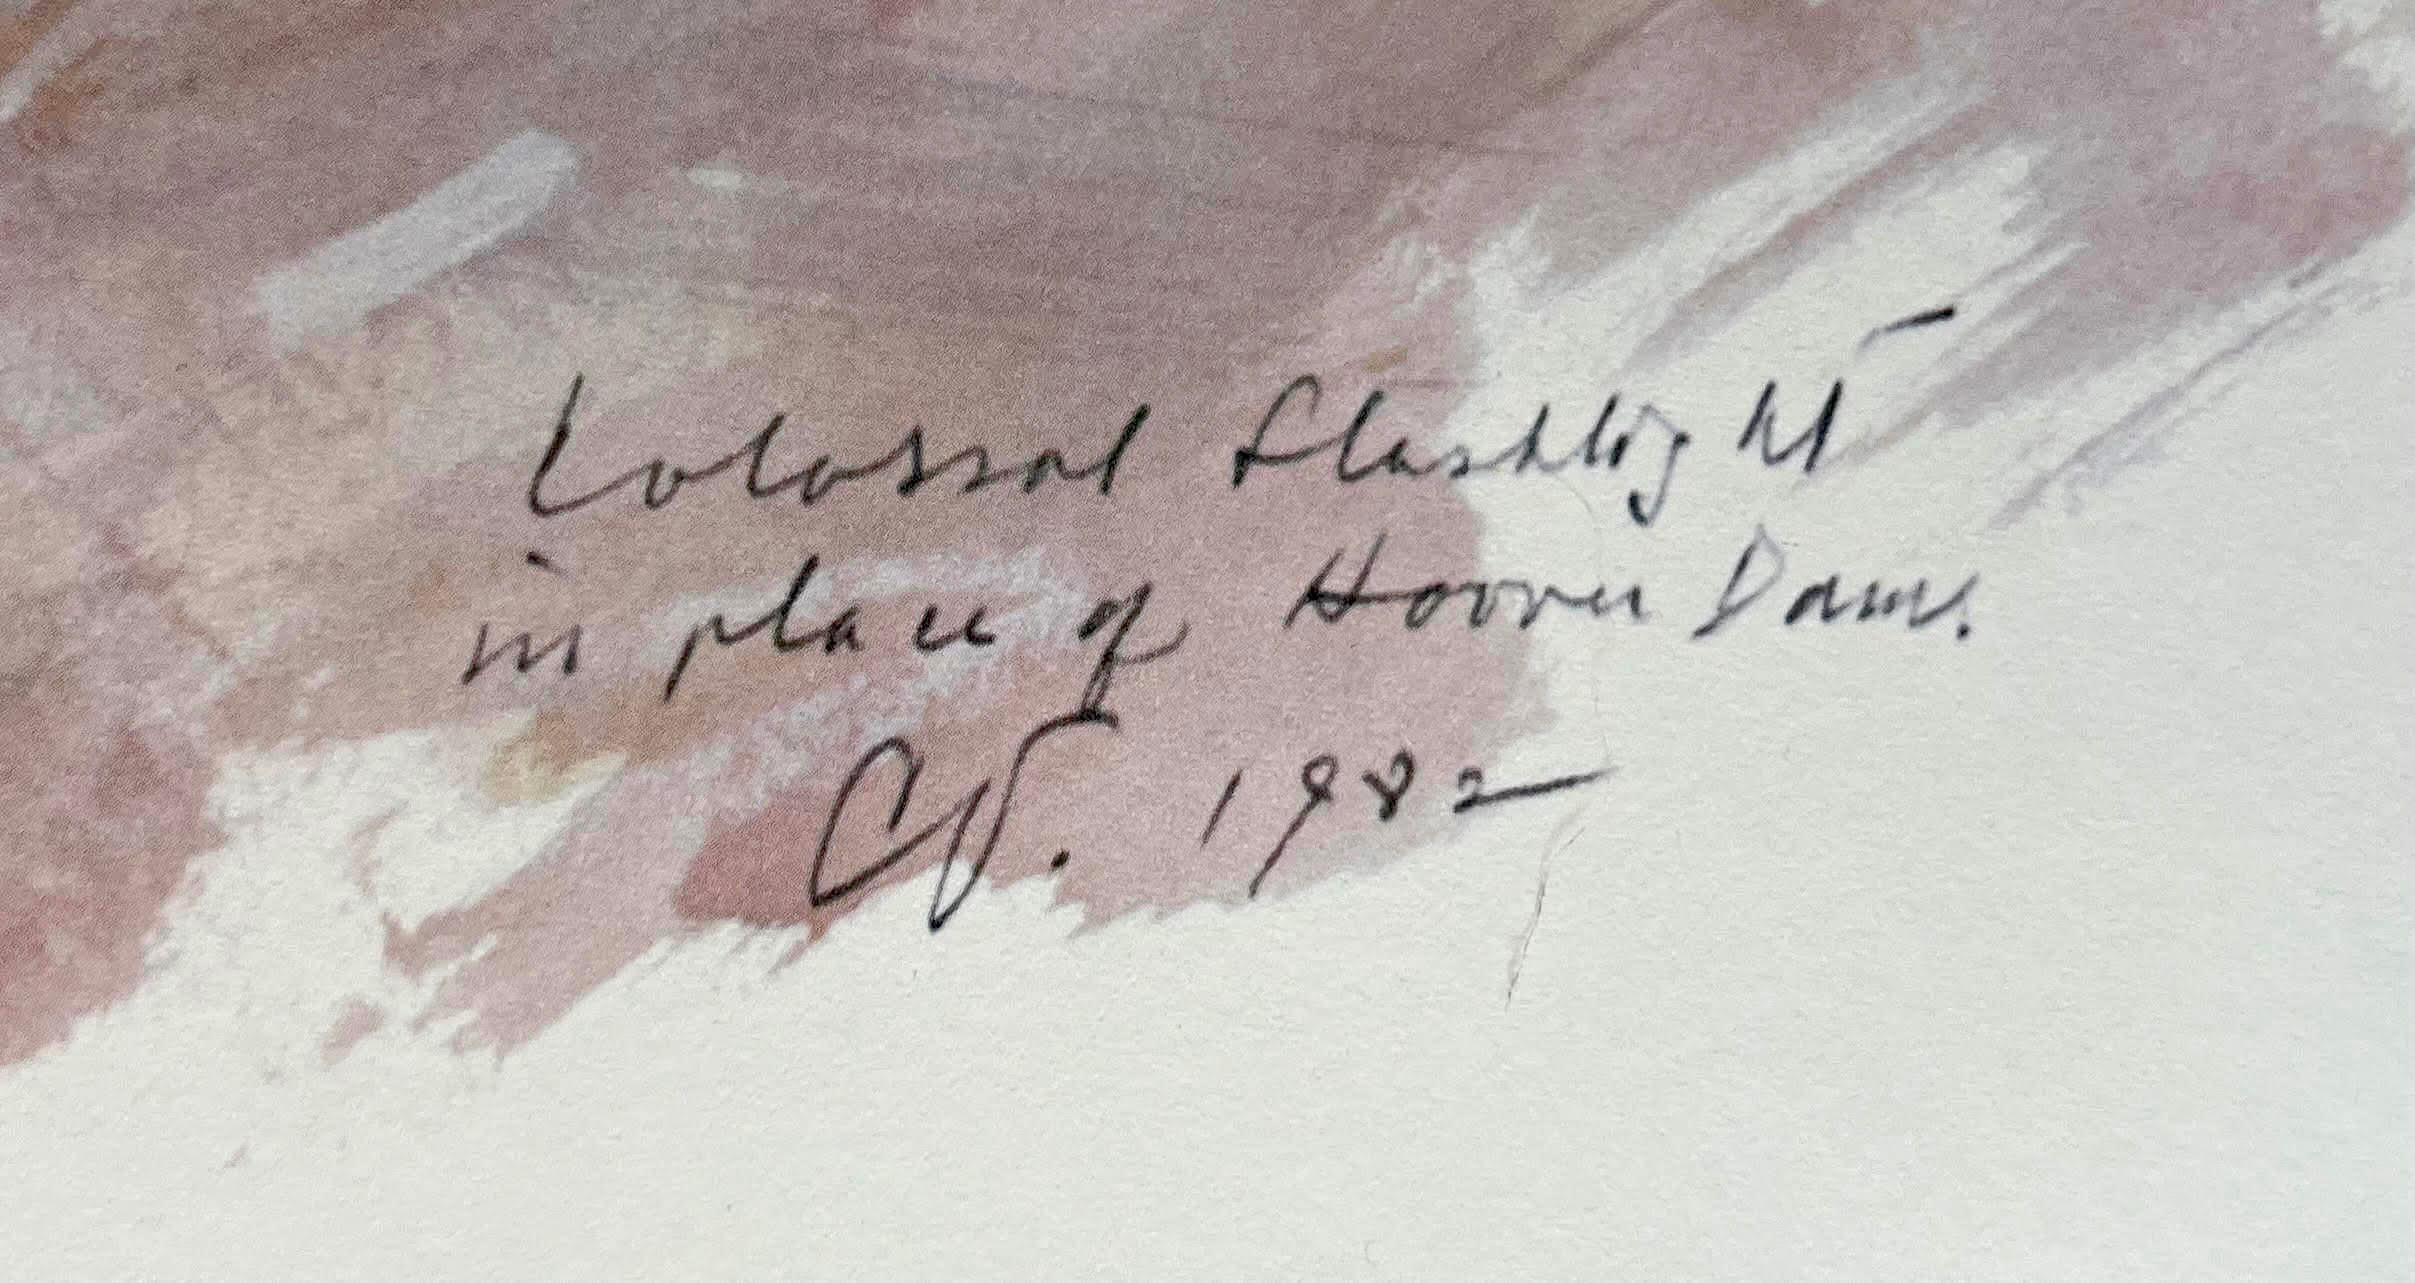 Colossal flashlight
in place of Hoover Dam.
CO. 1982